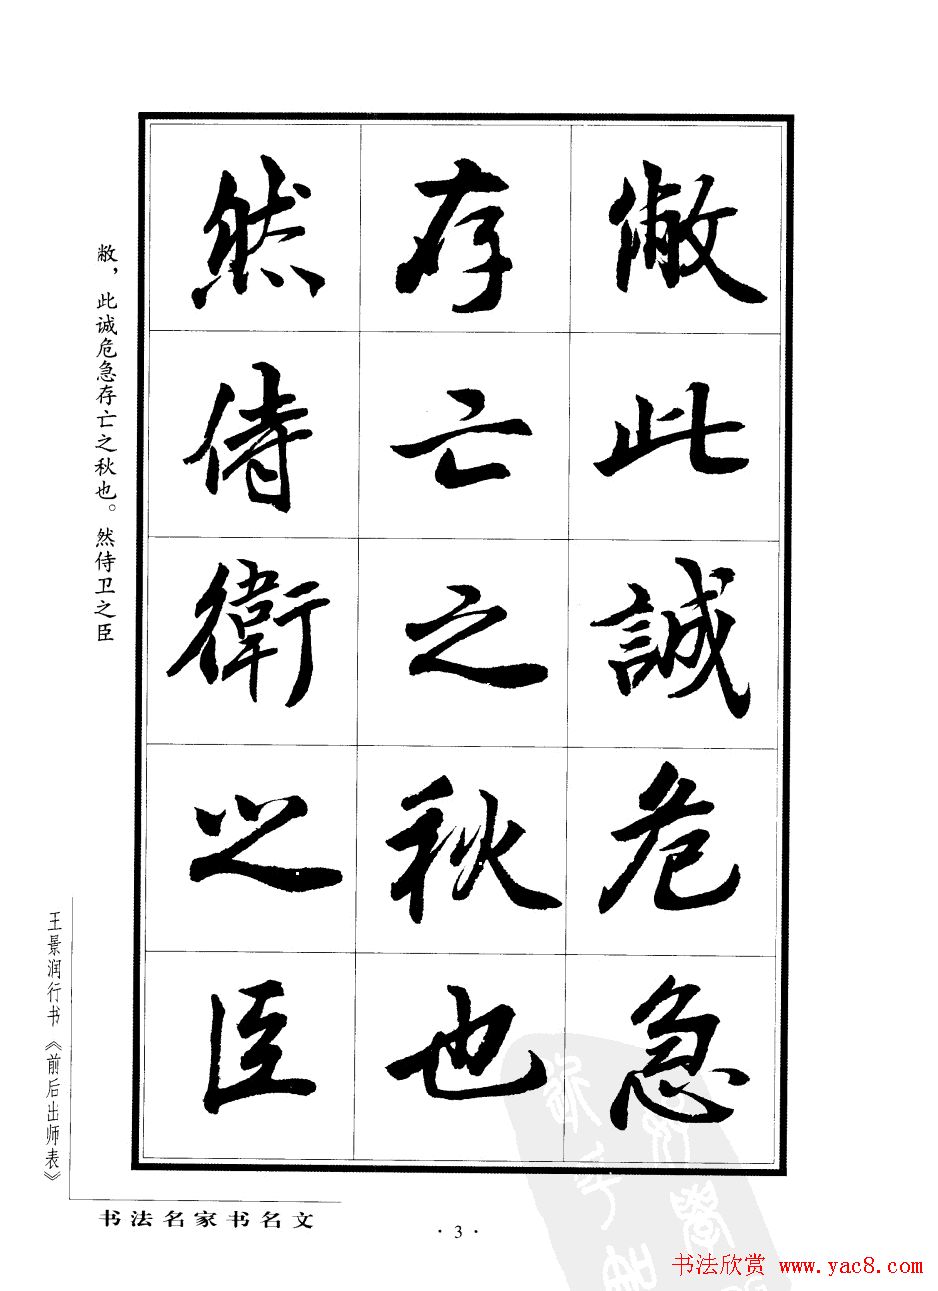 敝此誠危急
存亡之秋也
然侍衛之臣
敝，此诚危急存亡之秋也。然侍卫之臣
王景润行书《前后出师表》
书法名家书名文
·3·
书法欣赏 www.yac8.com